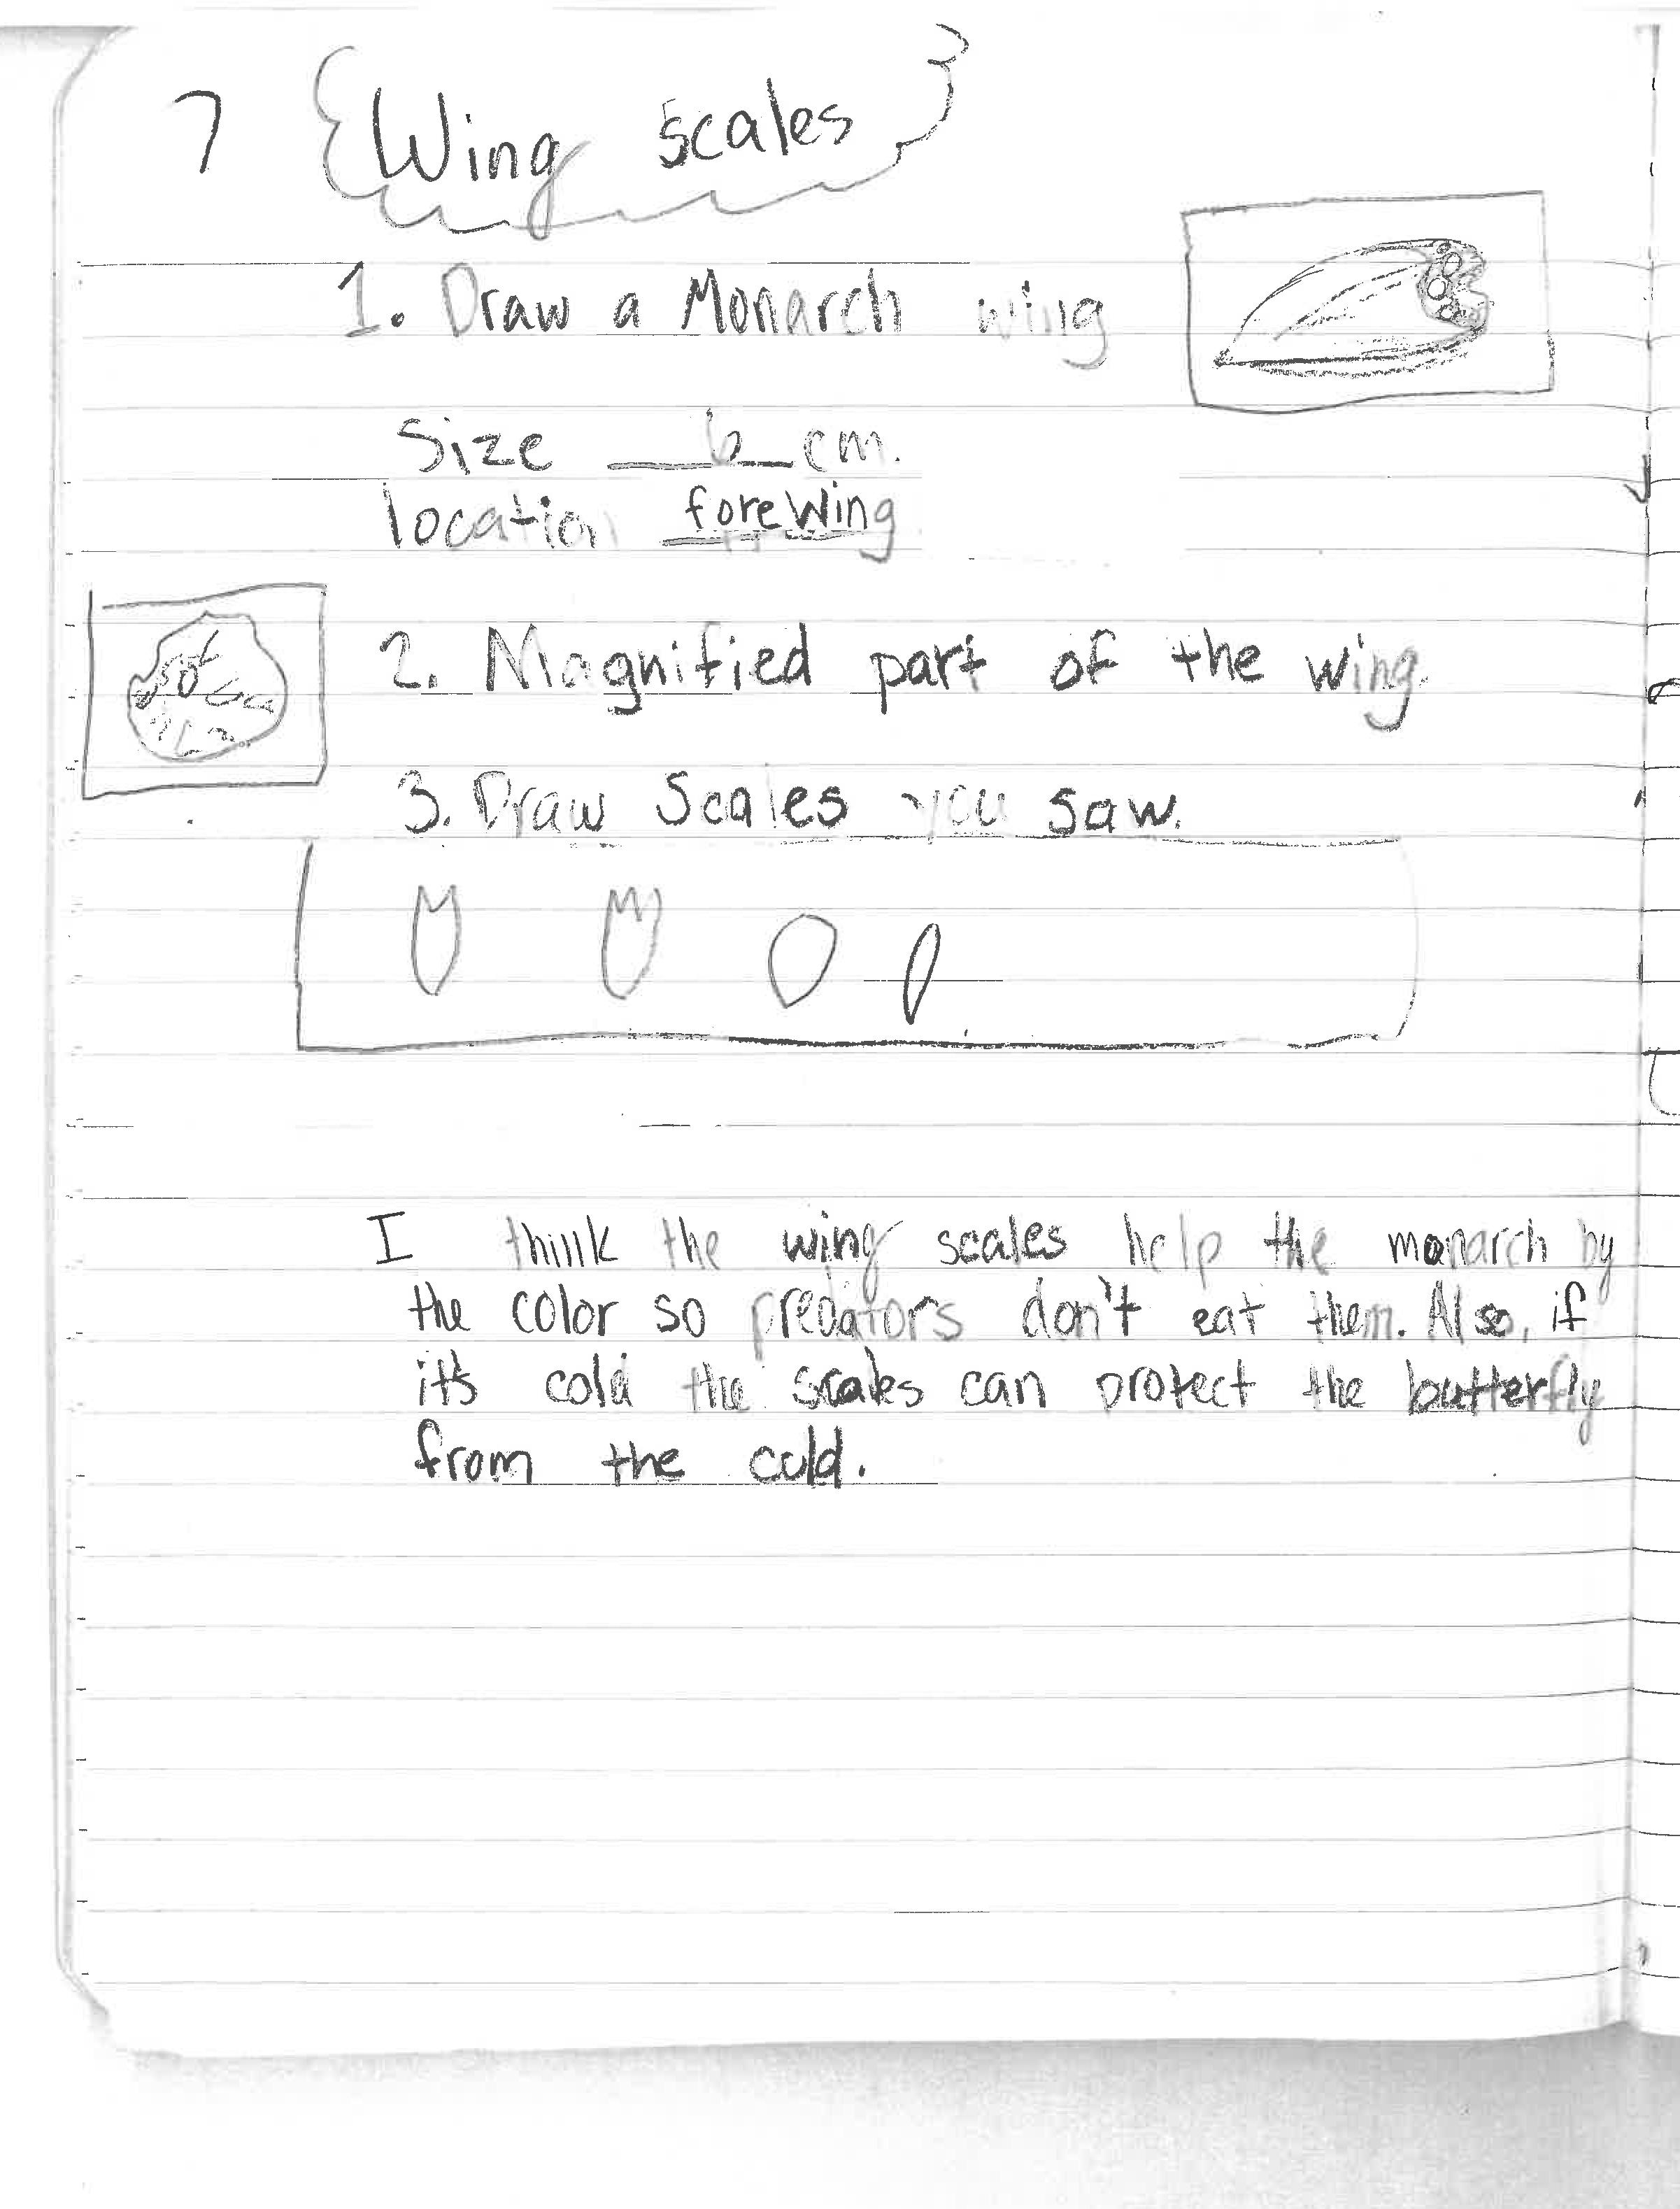 7 Wing scales
1. Draw a Monarch wing
Size 6 cm.
location forewing
2. Magnified part of the wing.
3. Draw Scales you saw.
I think the wing scales help the monarch by
the color so predators don't eat them. Also, if
it's cold the scales can protect the butterfly
from the cold.